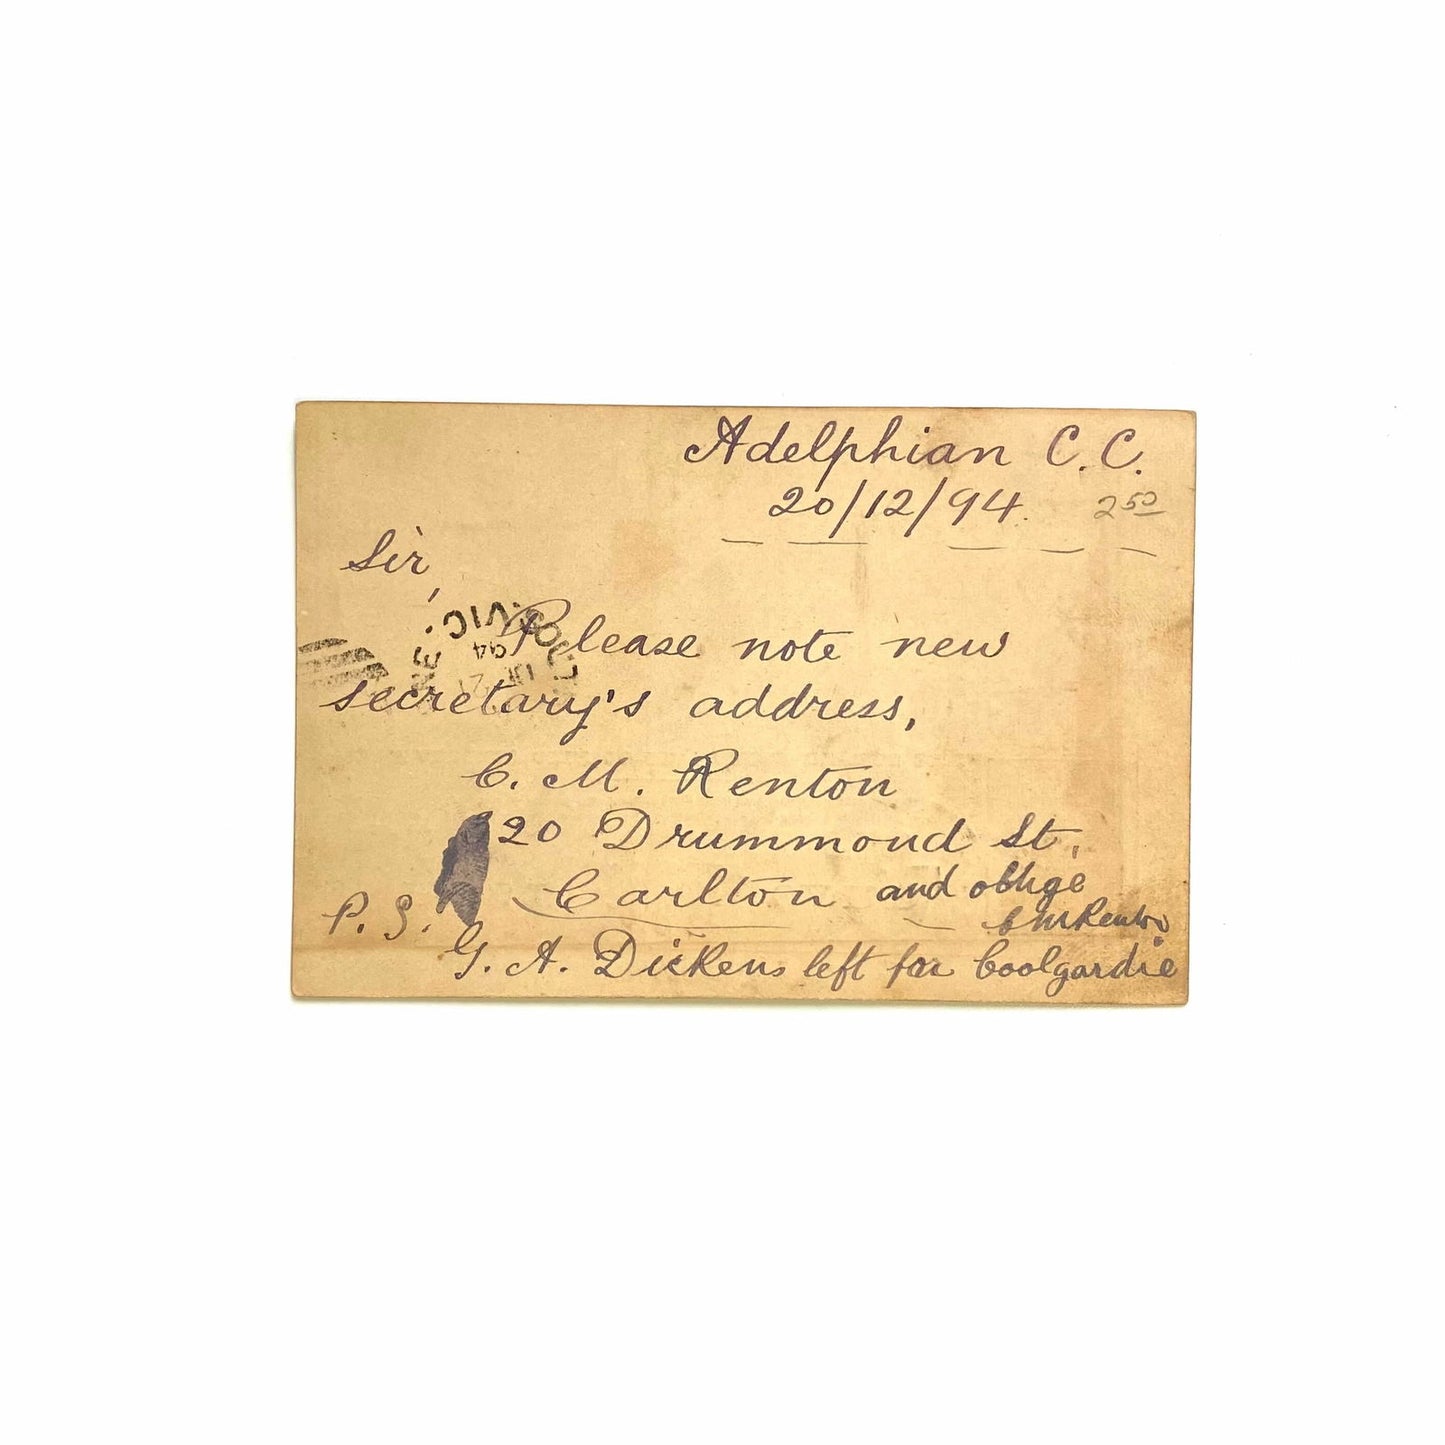 Adelphian C. C.
20/12/94.
2 50
Sir,
Please note new
secretary's address,
C. M. Renton
20 Drummond St.
Carlton and oblige
C M Renton
P. S.
G. A. Dickens left for Coolgardie
VIC.
94